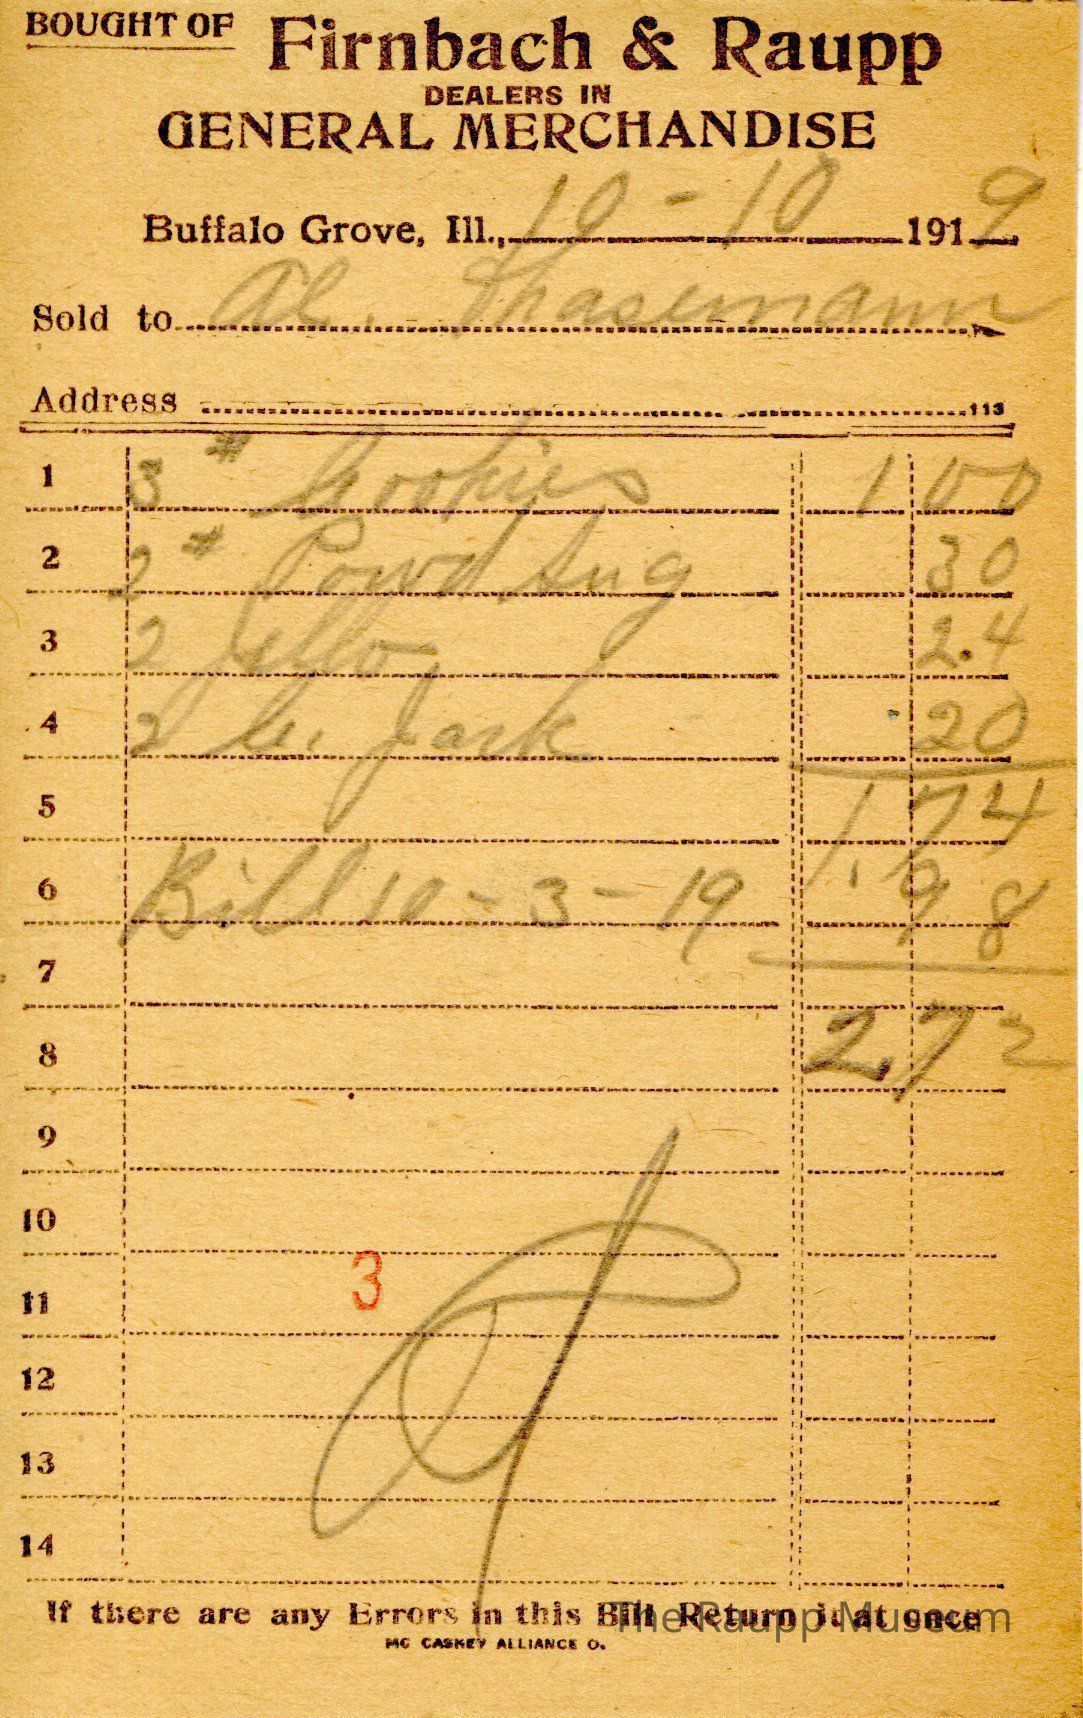 BOUGHT OF Firnbach & Raupp
DEALERS IN
GENERAL MERCHANDISE
Buffalo Grove, Ill., 10-10 1919
Sold to Al. Thasemann
Address 113
1 3 # Cookies 1 00
2 2 # Powd Sug 30
3 2 Jello 24
4 2 C. Jack 20
5 1 74
6 Bill 10-3-19 1.98
7
8 2,72
9
10
11 3
12
13
14
If there are any Errors in this Bill Return it at once
MC CASKEY ALLIANCE O.
The Raupp Museum